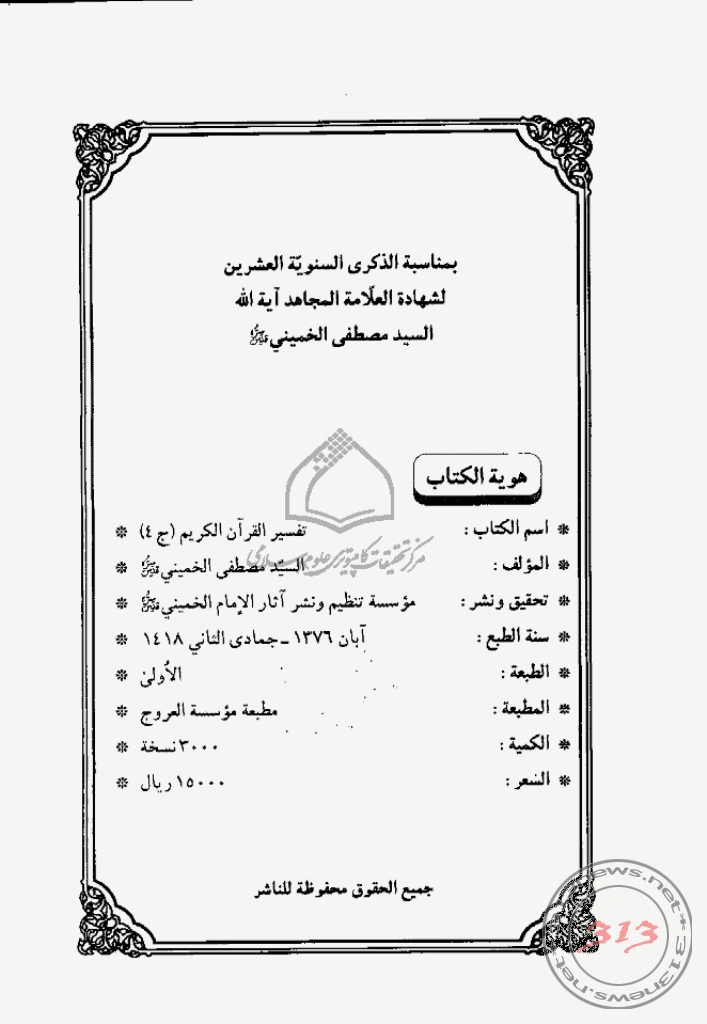 بمناسبة الذكرى السنويّة العشرين
لشهادة العلّامة المجاهد آية الله
السيد مصطفى الخميني
هوية الكتاب
* اسم الكتاب : تفسير القرآن الكريم (ج ٤) *
* المؤلف : السيّد مصطفى الخميني *
* تحقيق ونشر : مؤسسة تنظيم ونشر آثار الإمام الخميني *
* سنة الطبع : آبان ١٣٧٦ ـ جمادى الثاني ١٤١٨ *
* الطبعة : الأُولىٰ *
* المطبعة : مطبعة مؤسسة العروج *
* الكمية : ٣٠٠٠ نسخة *
* السعر : ١٥٠٠٠ ريال *
جميع الحقوق محفوظة للناشر
مرکز تحقیقات کامپیوتری علوم اسلامی
313news.net
313
313news.net